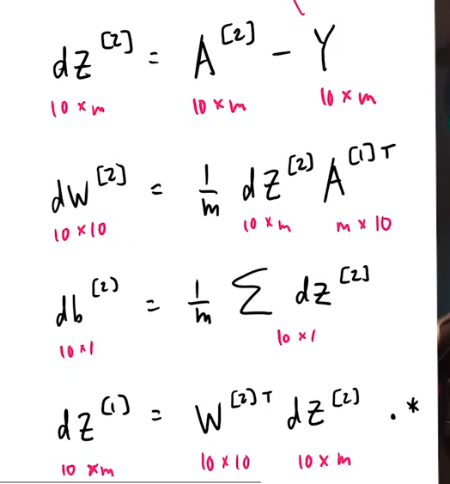 dZ^[2] = A^[2] - Y
10 x m 10 x m 10 x m
dW^[2] = 1/m dZ^[2] A^[1]T
10 x 10 10 x m m x 10
db^[2] = 1/m Σ dZ^[2]
10 x 1 10 x 1
dZ^[1] = W^[2]T dZ^[2] .*
10 x m 10 x 10 10 x m